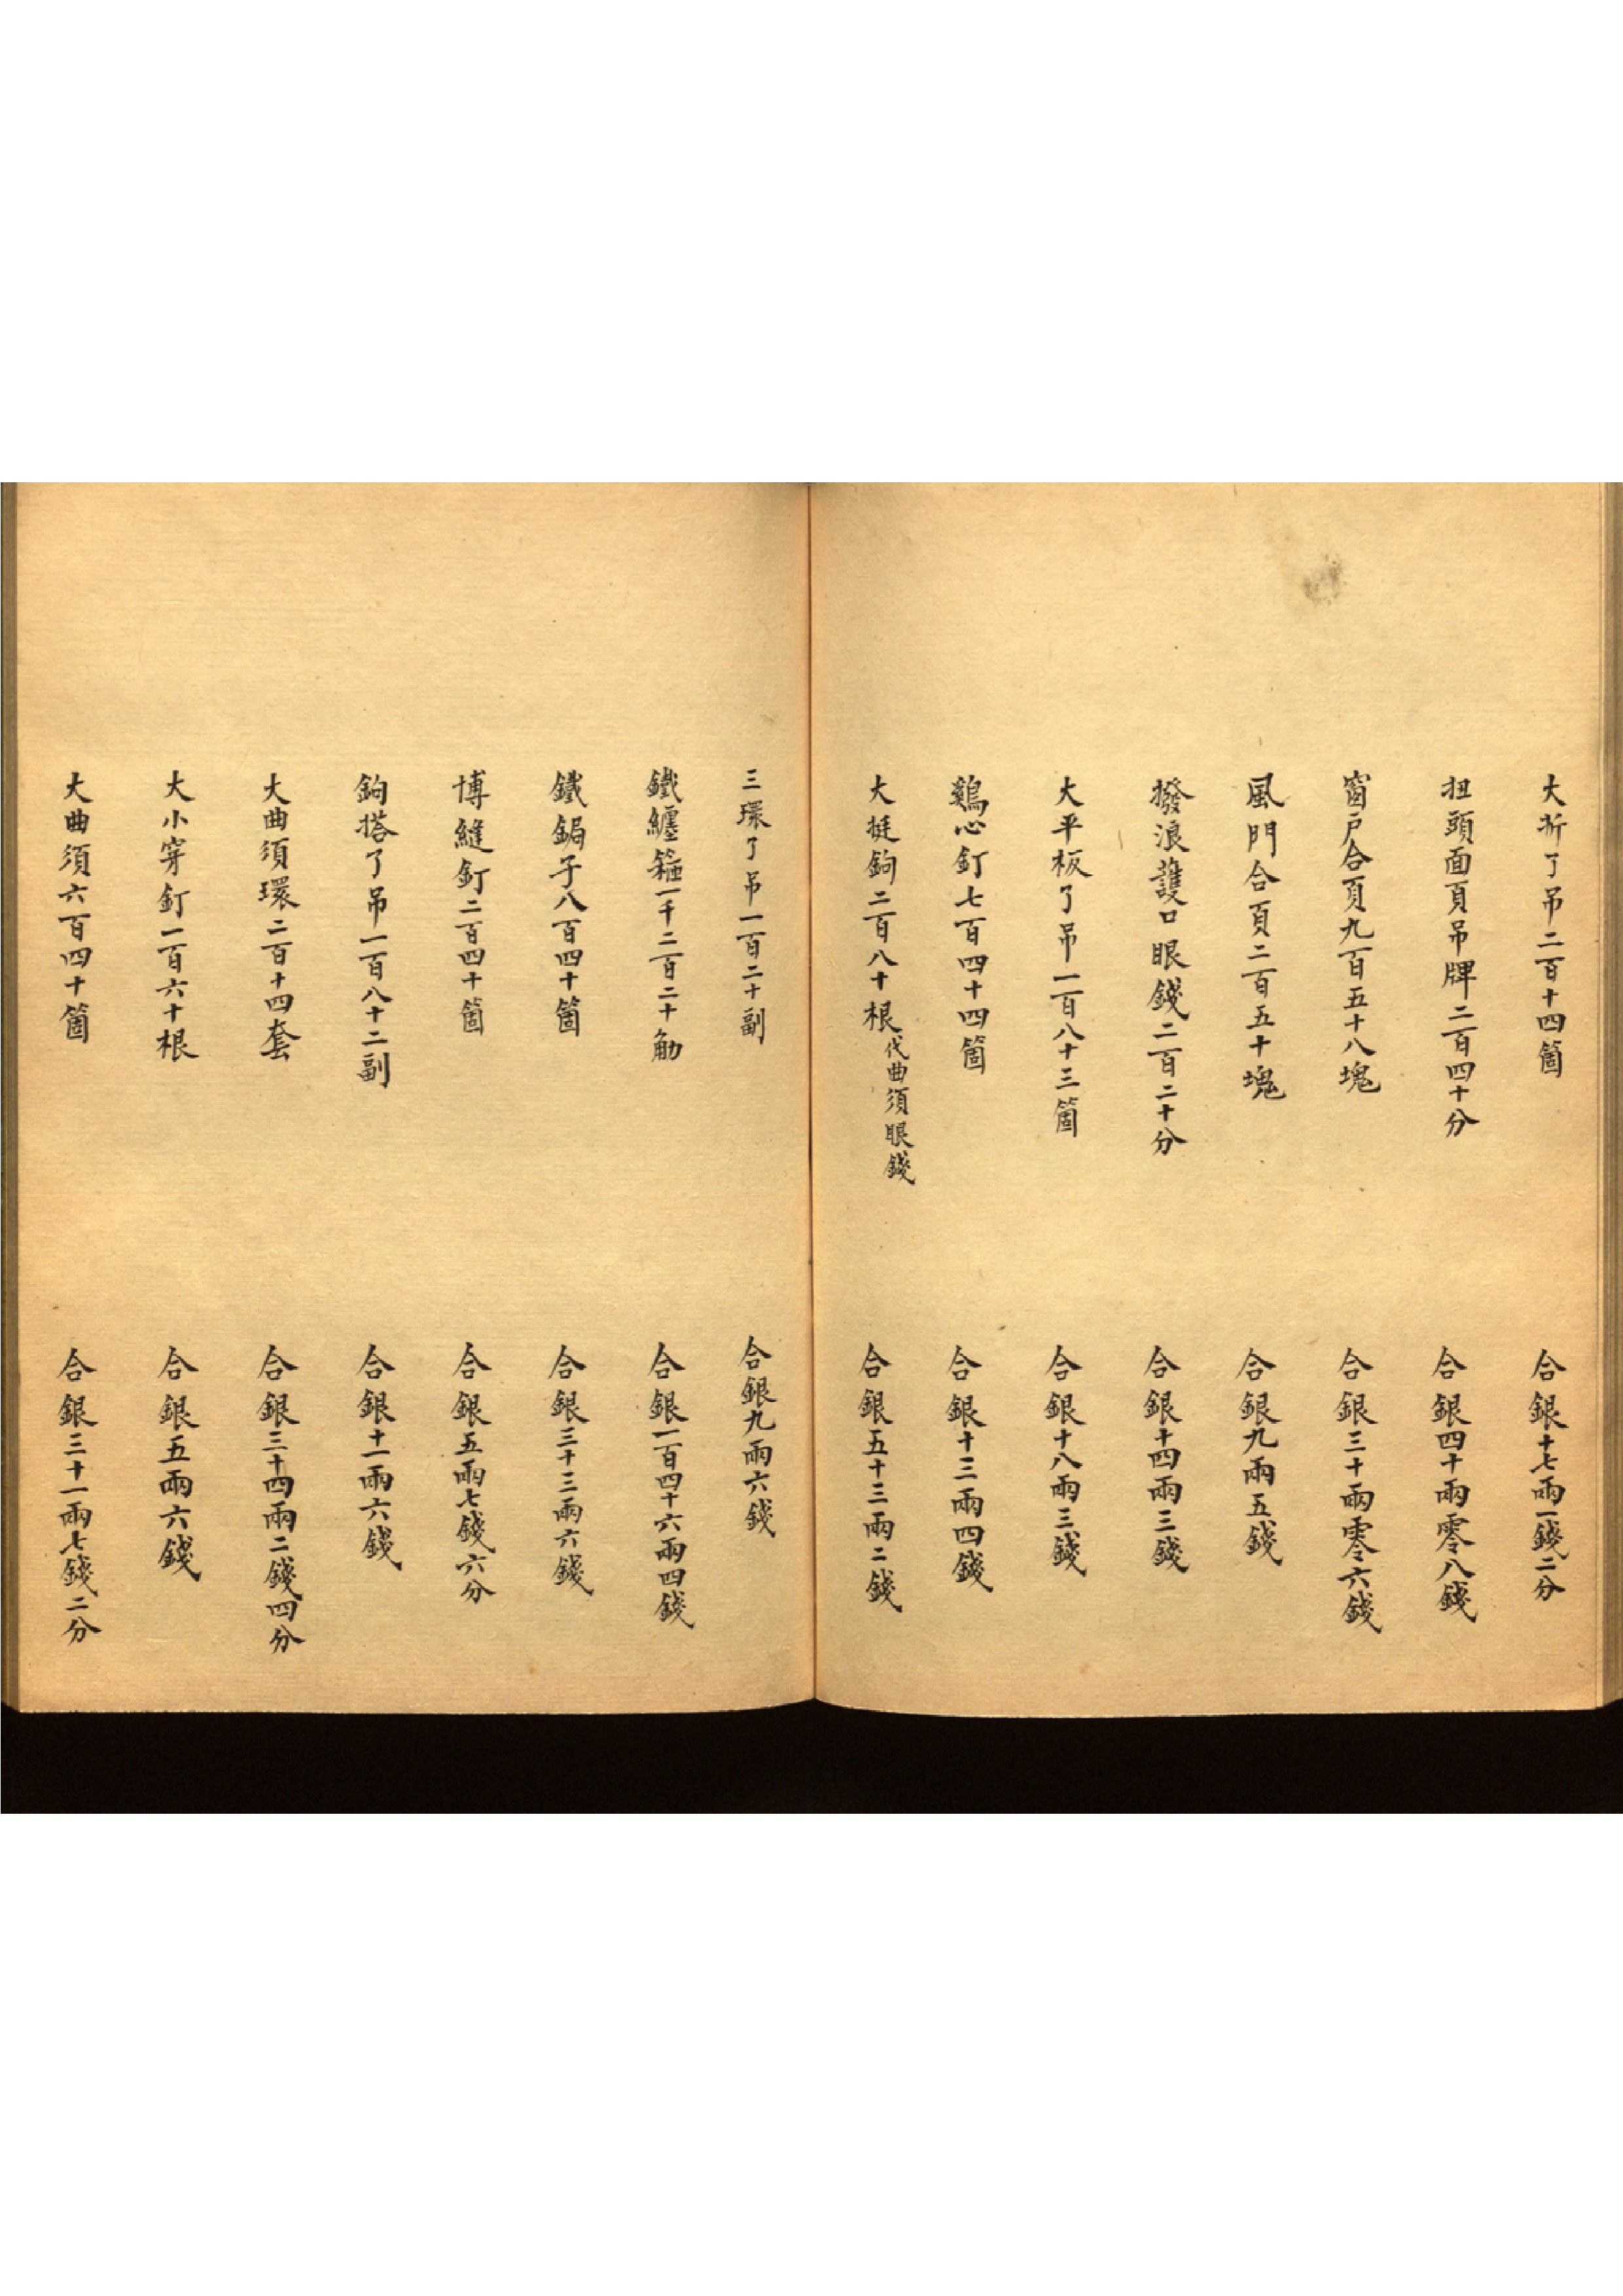 大折了吊二百十四箇　合銀十七兩一錢二分
扭頭面頁吊牌二百四十分　合銀四十兩零八錢
窗戶合頁九百五十八塊　合銀三十兩零六錢
風門合頁二百五十塊　合銀九兩五錢
撥浪護口眼錢二百二十分　合銀十四兩三錢
大平板了吊一百八十三箇　合銀十八兩三錢
鷄心釘七百四十四箇　合銀十三兩四錢
大挺鉤二百八十根代曲須眼錢　合銀五十三兩二錢
三環了吊一百二十副　合銀九兩六錢
鐵纏箍一千二百二十觔　合銀一百四十六兩四錢
鐵鋦子八百四十箇　合銀三十三兩六錢
博縫釘二百四十箇　合銀五兩七錢六分
鉤搭了吊一百八十二副　合銀十一兩六錢
大曲須環二百十四套　合銀三十四兩二錢四分
大小穿釘一百六十根　合銀五兩六錢
大曲須六百四十箇　合銀三十一兩七錢二分